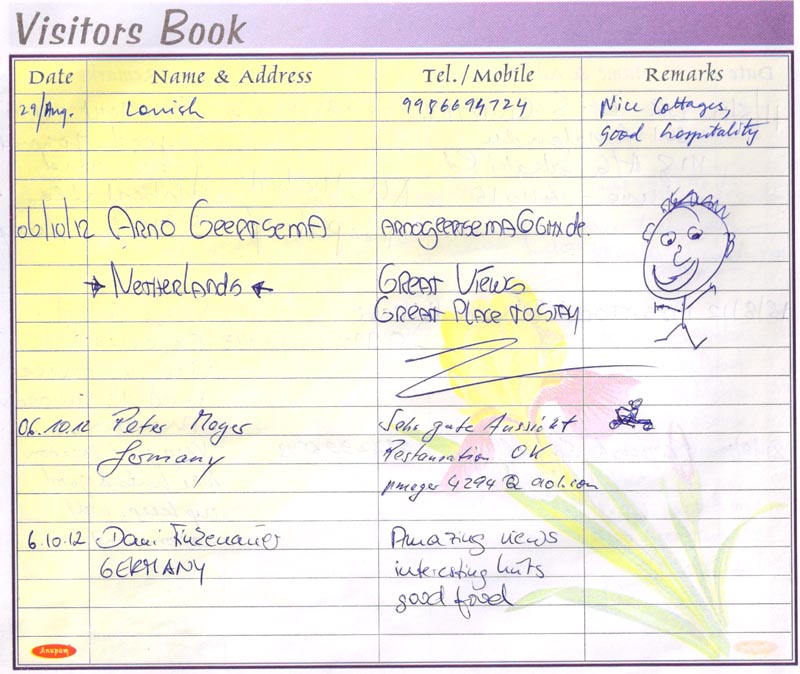 Visitors Book
Date Name & Address Tel./Mobile Remarks
29/Aug. 9986694724 Nice Cottages,
good hospitality
06/10/12 ARNO GEERTSEMA ARNOGEERTSEMA@GMX.de.
NETHERLANDS GREAT VIEWS
GREAT PLACE TO STAY
06.10.12 Peter Meyer Sehr gute Aussicht
Germany Restauration OK
pmeyer4294@aol.com
6.10.12 Dani Amazing views
GERMANY interesting huts
good food
Anupam